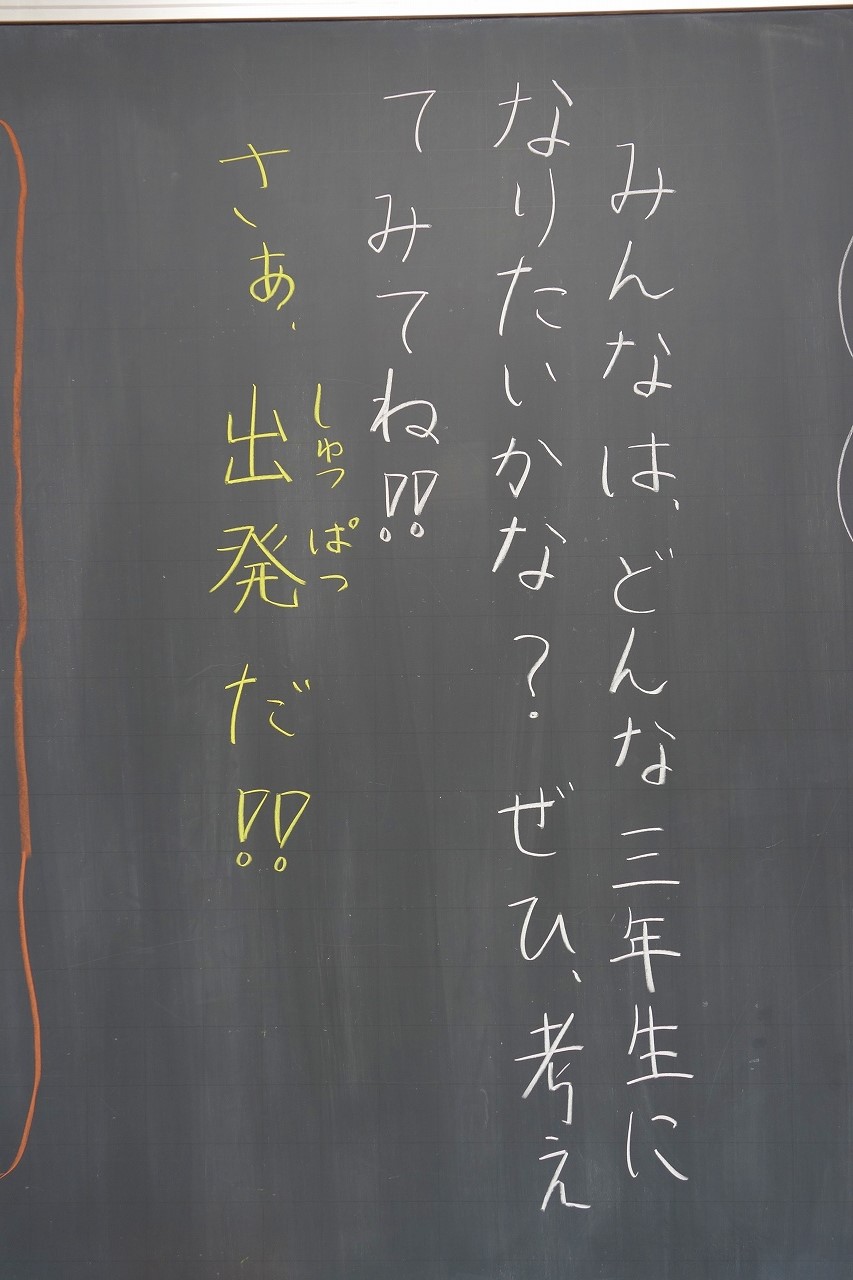 みんなは、どんな三年生に
なりたいかな？ぜひ、考え
てみてね!!
さあ、出発だ!!
しゅっぱつ